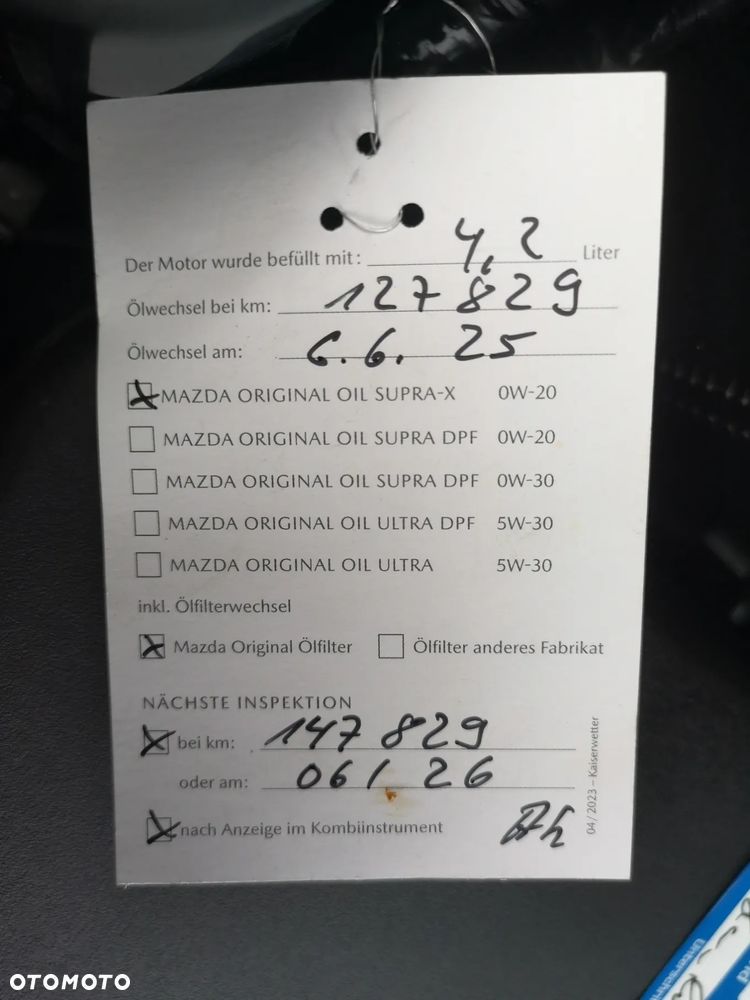 Der Motor wurde befüllt mit: 4,2 Liter
Ölwechsel bei km: 127829
Ölwechsel am: 6.6. 25
MAZDA ORIGINAL OIL SUPRA-X 0W-20
MAZDA ORIGINAL OIL SUPRA DPF 0W-20
MAZDA ORIGINAL OIL SUPRA DPF 0W-30
MAZDA ORIGINAL OIL ULTRA DPF 5W-30
MAZDA ORIGINAL OIL ULTRA 5W-30
inkl. Ölfilterwechsel
Mazda Original Ölfilter Ölfilter anderes Fabrikat
NÄCHSTE INSPEKTION
bei km: 147829
oder am: 06/26
nach Anzeige im Kombiinstrument
04/2023 – Kaiserwetter
OTOMOTO